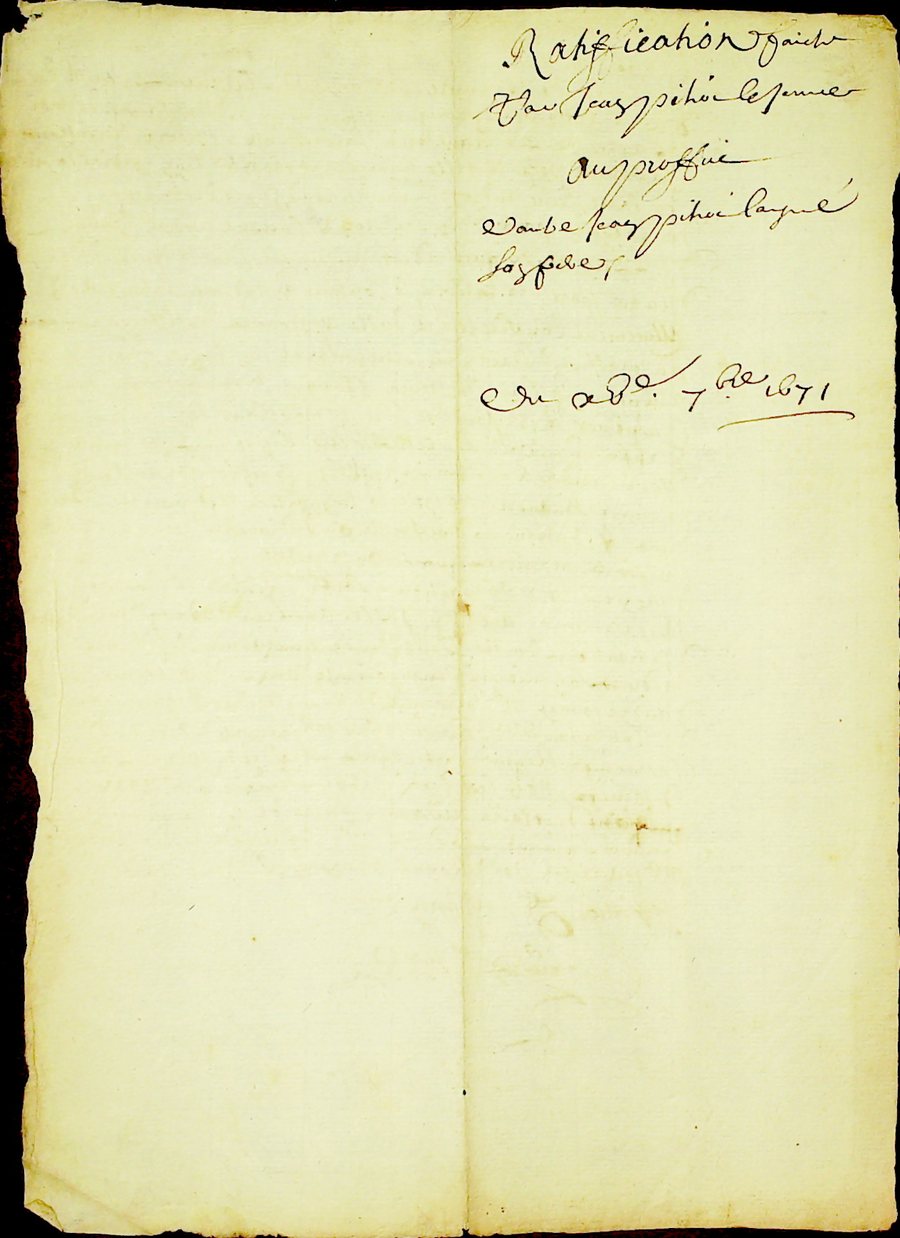 Ratiffication faicte
Par Jean pitoi le jeune
Au proffit
dautre Jean pitoi laysné
son frere
Du xve. 7bre 1671